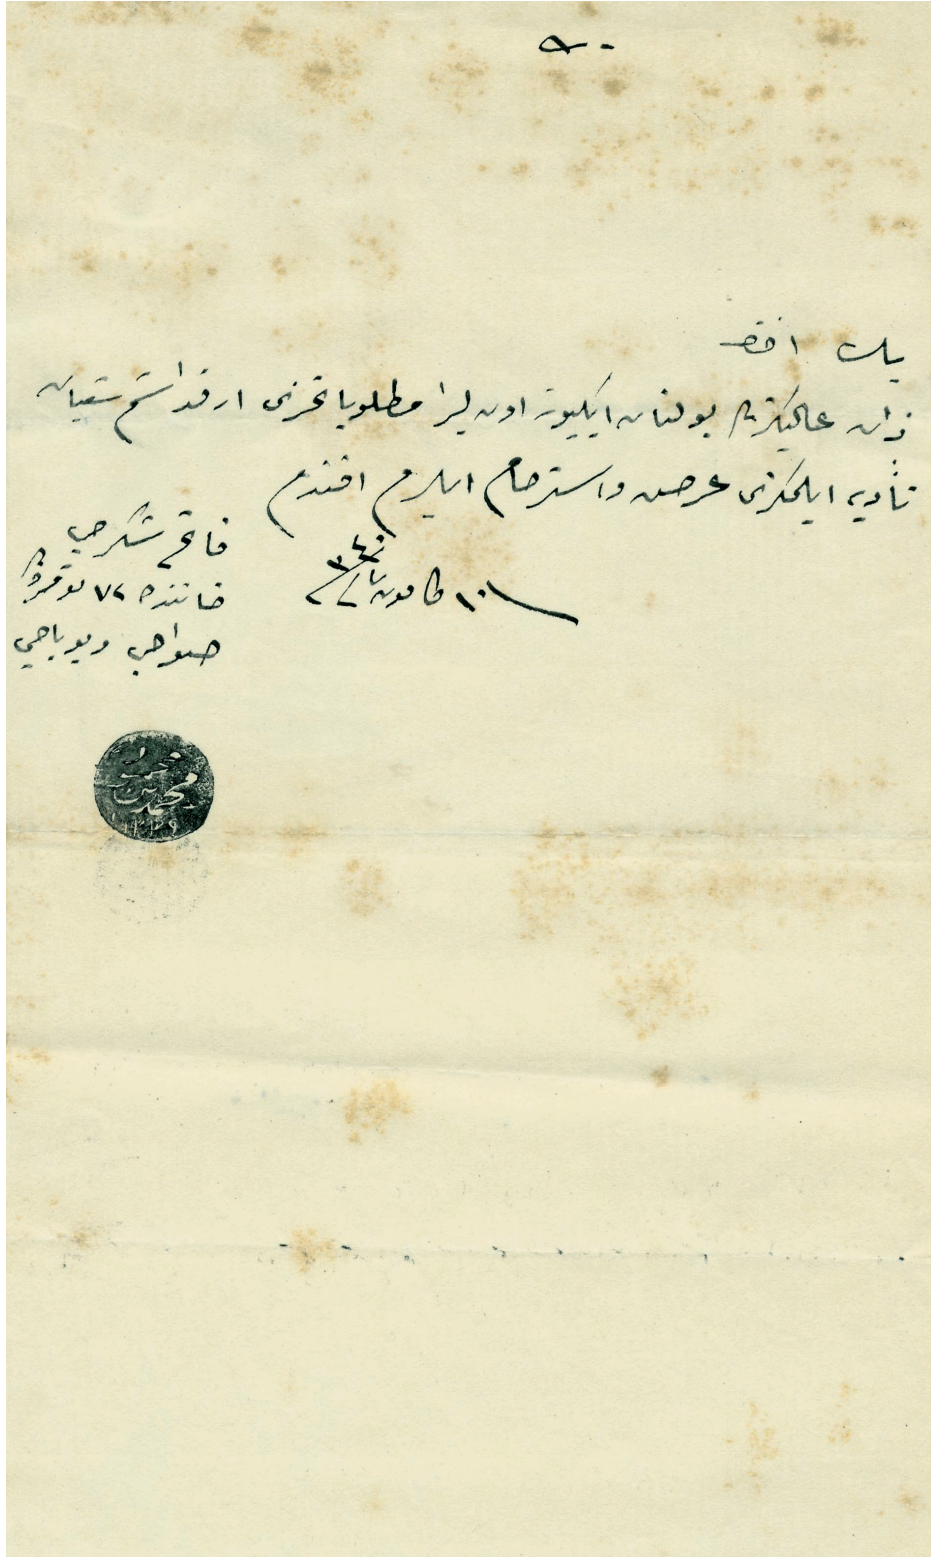 بك افندم
ذات عاليكزده بولنان ايكيوز اون ليرا مطلوباتمزى ارقداشم شعبانه
تأديه ايلمكزى عرض و استرحام ايلرم افندم
١٠ كانون ٣٤٠
فاتح شكرجى
خاننده ٧٢ نومروده
صواجى و بوياجى
محمد
١٣٢٩